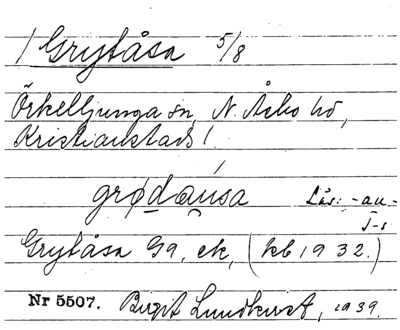 / Grytåsa 5/8
Örkelljunga sn, N. Åsbo hd,
Kristianstads l
grødausa Läs: -au-
Grytåsa Gg, ek, (kb 1932.)
Nr 5507. Birgit Lundkvist, 1939.